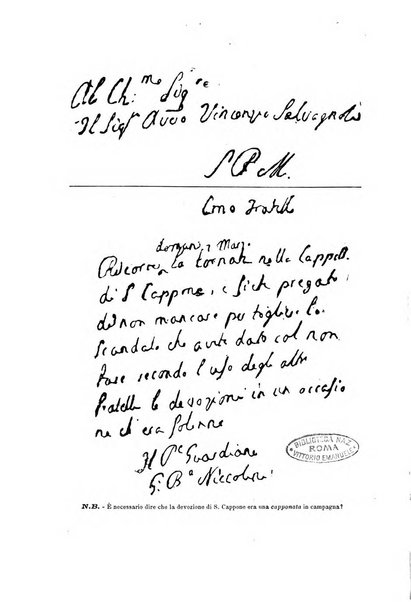 Al Ch.mo Sig.re
Il Sig.r Avvo Vincenzo Salvagnoli
S P M.
Cmo Fratello
Ricorre la tornata nella Cappella
di S Cappone, e siete pregato
di non mancare per togliere lo
scandalo che avete dato col non
fare secondo l'uso degli altri
fratelli le devozioni in un occasio
ne di era solenne
Il Pe Guardiano
G. Ba Niccolini
BIBLIOTECA NAZ.
ROMA
VITTORIO EMANUELE
N.B. - È necessario dire che la devozione di S. Cappone era una capponata in campagna?